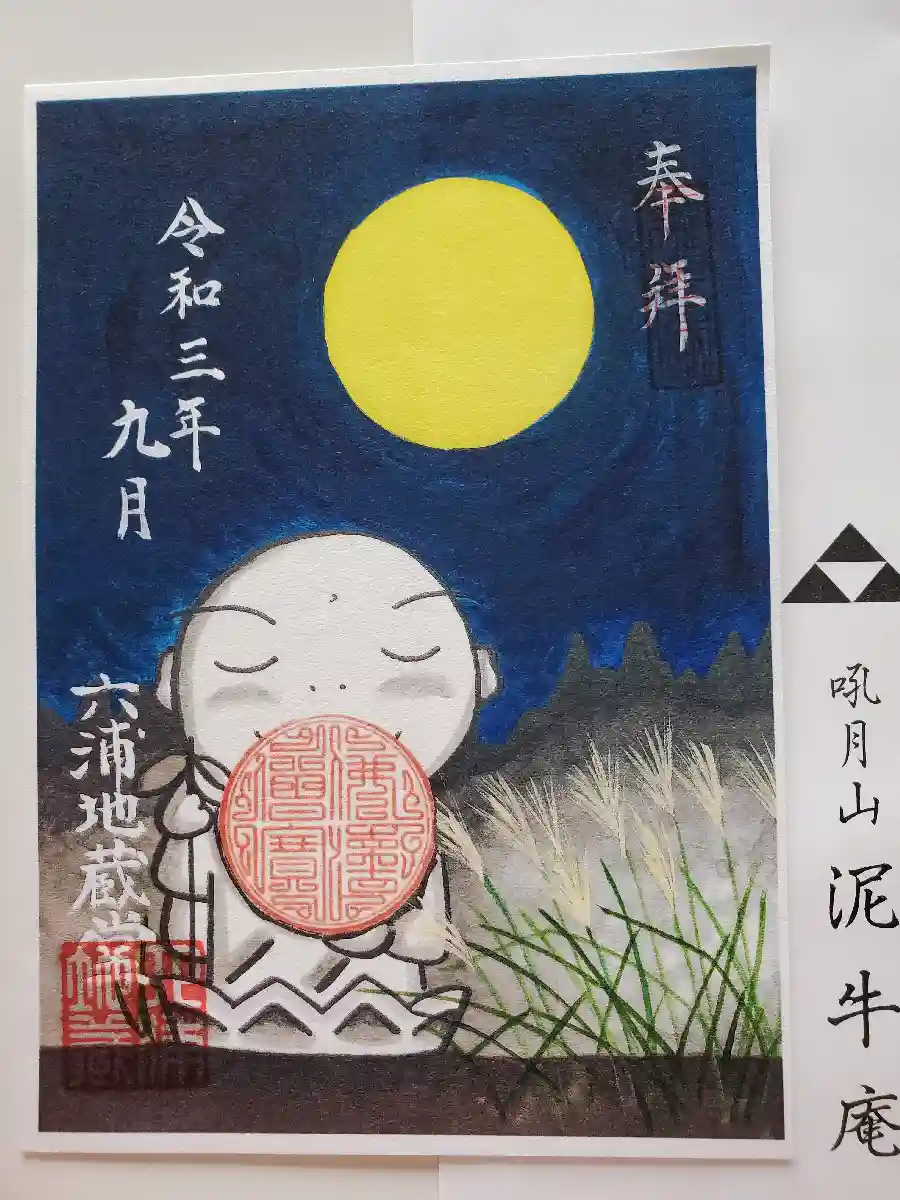 奉拝
令和三年
九月
六浦地蔵堂
吼月山 泥牛庵